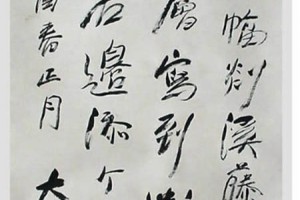 幅剡溪藤
層寫到
石邊添个
酉春正月
大